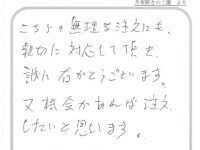 月夜野きのこ園 より
こちらの無理な注文にも、
親切に対応して頂き
誠に有がとうございます。
又機会があれば注文
したいと思います。